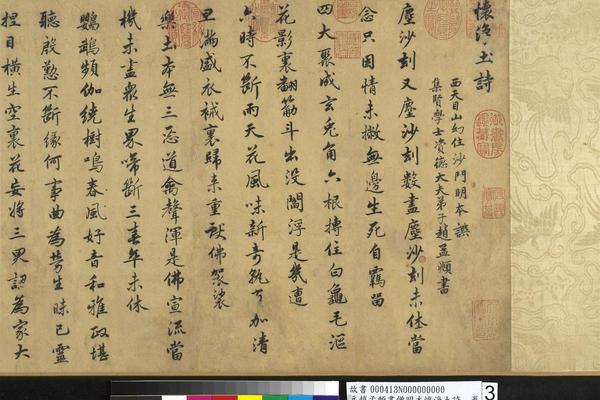 懷淨土詩
西天目山幻住沙門明本譔
集賢學士資德大夫弟子趙孟頫書
塵沙刼又塵沙刼數盡塵沙刼未休當
念只因情未撇無邊生死自羈留
四大聚成玄兎角六根搏住白龜毛漚
花影裏翻筋斗出没閻浮是幾遭
六時不斷雨天花風味新奇孰可加清
旦滿盛衣裓裏歸來重獻佛袈裟
樂土本無三惡道禽聲渾是佛宣流當
機未盡衆生界啼斷三春卒未休
鸚鵡頻伽繞樹鳴春風好音和雅政堪
聽殷懃不斷緣何事曲為勞生昧已靈
捏目橫生空裏花妄將三界認為家大
故書 000413N000000000
3